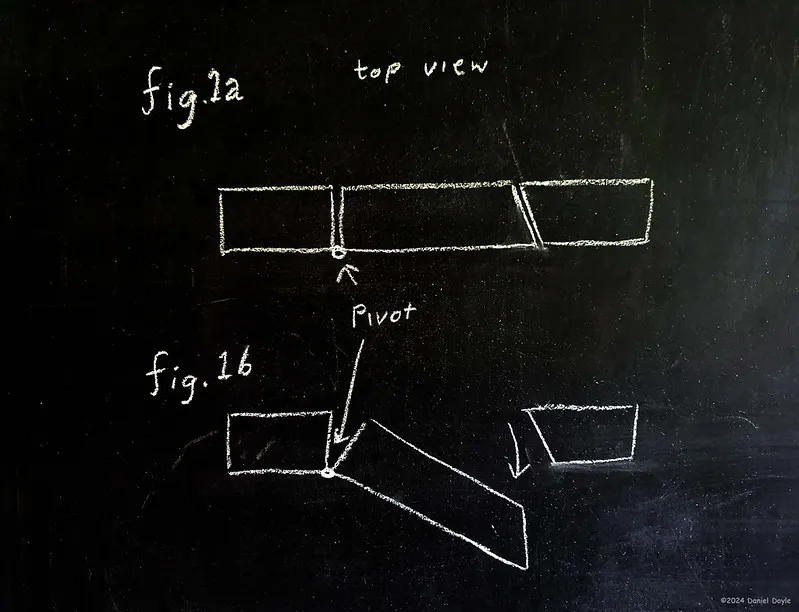 fig.1a
top view
Pivot
fig.1b
©2024 Daniel Doyle